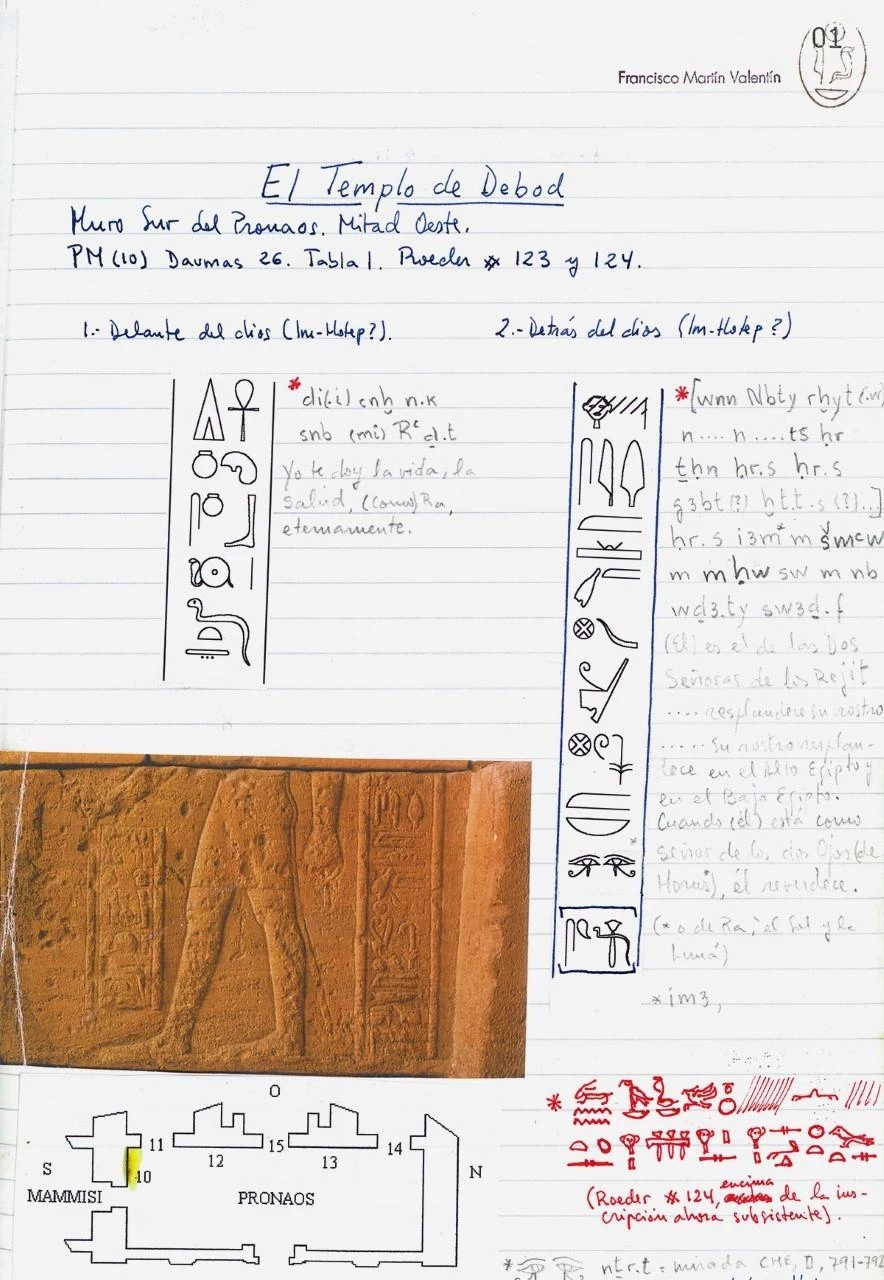 01
Francisco Martín Valentín
El Templo de Debod
Muro Sur del Pronaos. Mitad Oeste.
PM (10) Daumas 26. Tabla 1. Roeder * 123 y 124.
1.- Delante del dios (Im-Hotep?).
* di(.i) ꜥnḫ n.k
snb (mi) Rꜥ ḏ.t
Yo te doy la vida, la
salud, (como) Ra,
eternamente.
2.- Detrás del dios (Im-Hotep?)
*[wnn Nbty rḫyt (.w)
n .... n ..... ts ḥr
ṯḥn ḥr.s ḥr.s
ḥr.s i3m* m šmꜥw
m mḥw sw m nb
wḏ3.ty sw3ḏ.f
(Él) es el de las Dos
Señoras de los Rejit
.... resplandece su rostro
..... su rostro resplan-
dece en el Alto Egipto y
en el Bajo Egipto.
Cuando (él) está como
señor de los dos Ojos (de
Horus), él reverdece.
(* o de Ra, el Sol y la
Luna)
* im3,
O
11
15
14
12
13
S
10
N
MAMMISI
PRONAOS
*
(Roeder * 124, encima de la ins-
cripción ahora subsistente).
* nṯr.t = mirada CHE, II, 791-792